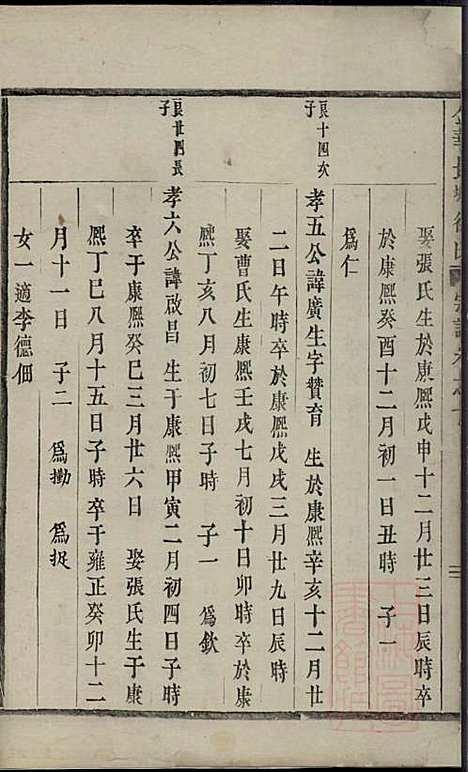 娶張氏生於康熙戊申十二月廿三日辰時卒
於康熙癸酉十二月初一日丑時　子一
為仁
良十四次子
孝五公諱廣生字贊育　生於康熙辛亥十二月廿
二日午時卒於康熙戊戌三月廿九日辰時
娶曹氏生康熙壬戌七月初十日卯時卒於康
熙丁亥八月初七日子時　子一　為欽
良廿四長子
孝六公諱啟昌　生于康熙甲寅二月初四日子時
卒于康熙癸巳三月廿六日　娶張氏生于康
熙丁巳八月十五日子時卒于雍正癸卯十二
月十一日　子二　為勷　為捉
女一適李德佃